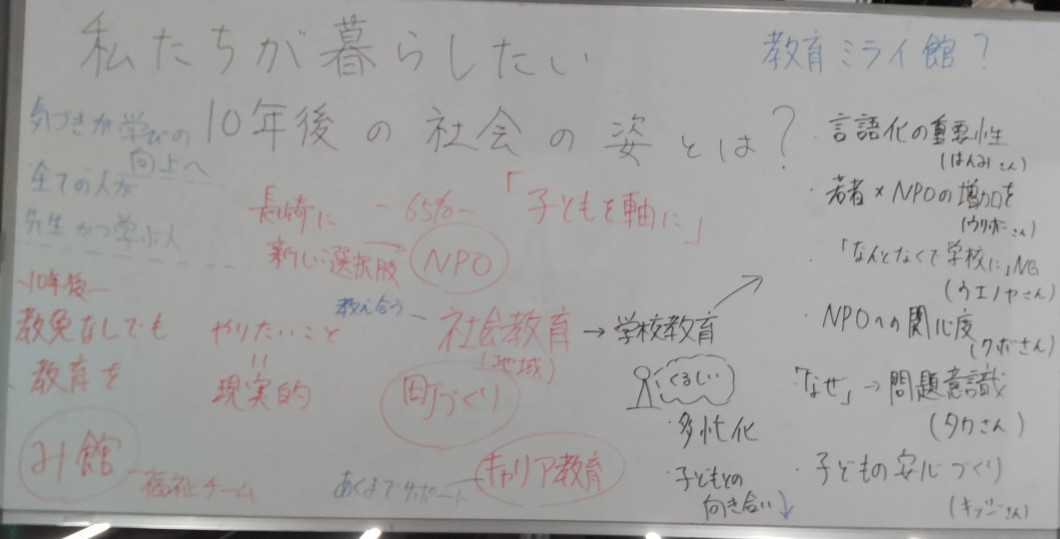 私たちが暮らしたい
10年後の社会の姿とは?
教育ミライ館?
気づきが学びの
向上へ
全ての人が
先生かつ学ぶ人
長崎に
新しい選択肢
-65%-
「子どもを軸に」
NPO
-10年後-
教免なしでも
教育を
やりたいこと
=
現実的
教え合う
社会教育
(地域)
→学校教育
町づくり
くるしい
・多忙化
・子どもとの
向き合い↓
み館
福祉チーム
あくまでサポート
キャリア教育
・言語化の重要性
(はんみさん)
・若者×NPOの増加を
(ウリボーさん)
・「なんとなくで学校に」NG
(ウエノヤさん)
・NPOへの関心度
(クボさん)
・「なぜ」→問題意識
(タカさん)
・子どもの安心づくり